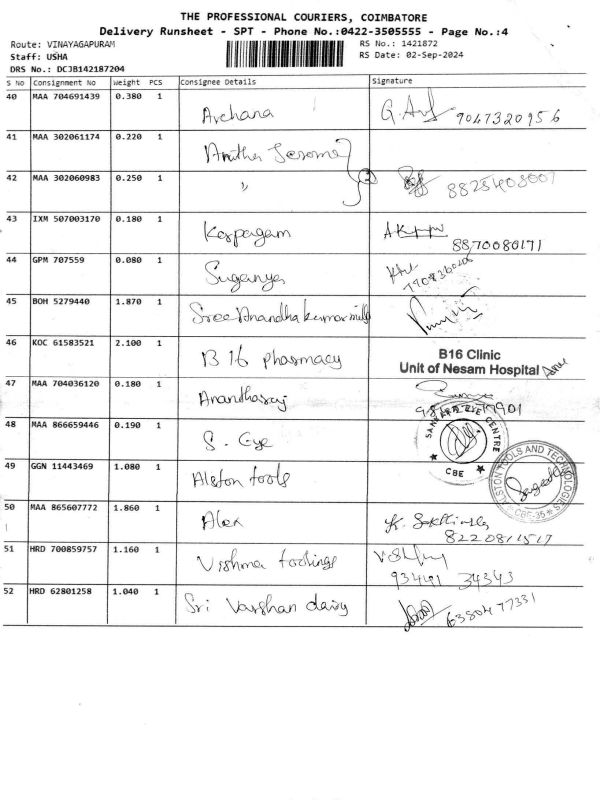 THE PROFESSIONAL COURIERS, COIMBATORE
Delivery Runsheet - SPT - Phone No.:0422-3505555 - Page No.:4
Route: VINAYAGAPURAM RS No.: 1421872
Staff: USHA RS Date: 02-Sep-2024
DRS No.: DCJB142187204
S No Consignment No Weight PCS Consignee Details Signature
40 MAA 704691439 0.380 1 Archana 9047320956
41 MAA 302061174 0.220 1 Anitha Jerome
42 MAA 302060983 0.250 1 "
43 IXM 507003170 0.180 1 Karpagam 8870080171
44 GPM 707559 0.080 1 Suganya
45 BOH 5279440 1.870 1 Sree Anandhakumar mills
46 KOC 61583521 2.100 1 B 16 pharmacy B16 Clinic
Unit of Nesam Hospital
47 MAA 704036120 0.180 1 Anantharaj
48 MAA 866659446 0.190 1 S. Eye SANKARA EYE CENTRE CBE
49 GGN 11443469 1.080 1 Alston tools ALSTON TOOLS AND TECHNOLOGIES CBE-35
50 MAA 865607772 1.860 1 Alex
51 HRD 700859757 1.160 1 Vishma toolings 93441 34343
52 HRD 62801258 1.040 1 Sri Varshan dairy 6380477331